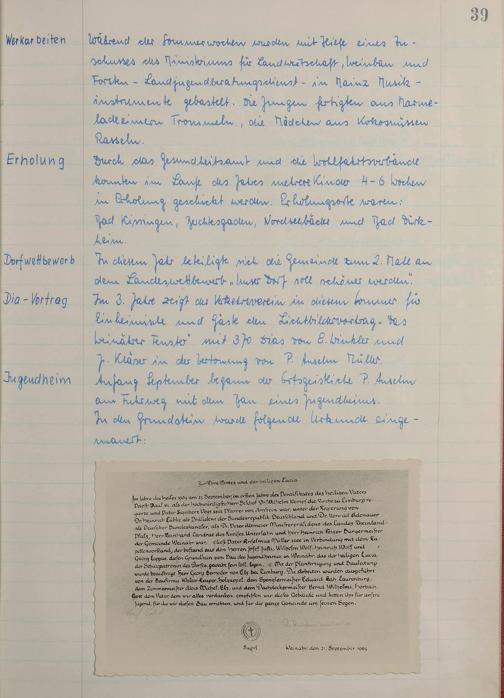 39
Werkarbeiten
Während der Sommerwochen wurden mit Hilfe eines Zu-
schusses des Ministeriums für Landwirtschaft, Weinbau und
Forsten - Landjugendberatungsdienst - in Mainz Musik-
instrumente gebastelt. Die Jungen fertigten aus Marme-
ladeeimern Trommeln, die Mädchen aus Kokosnüssen
Rasseln.
Erholung
Durch das Gesundheitsamt und die Wohlfahrtsverbände
konnten im Laufe des Jahres mehrere Kinder 4-6 Wochen
in Erholung geschickt werden. Erholungsorte waren:
Bad Kissingen, Berchtesgaden, Nordseebäder und Bad Dürk-
heim.
Dorfwettbewerb
In diesem Jahr beteiligte sich die Gemeinde zum 2. Male an
dem Landeswettbewerb „Unser Dorf soll schöner werden".
Dia-Vortrag
Im 3. Jahre zeigt der Verkehrsverein in diesem Sommer für
Einheimische und Gäste den Lichtbildervortrag "Das
Weinährer Fenster" mit 370 Dias von E. Winkler und
J. Kläser in der Vertonung von P. Anselm Müller.
Jugendheim
Anfang September begann der Ortsgeistliche P. Anselm
am Fuhrweg mit dem Bau eines Jugendheims.
In den Grundstein wurde folgende Urkunde einge-
mauert:
Im Jahre des Heiles 1963 am 21. September, im ersten Jahre des Pontifikates des heiligen Vaters
Papst Paul VI. als der hochwürdigste Herr Bischof Dr. Wilhelm Kempf die Kirche zu Limburg re-
gierte und Pater
Pfarrer von Arnstein war, unter der Regierung von
Dr. Heinrich Lübke als Präsident der Bundesrepublik Deutschland und Dr. Konrad Adenauer
als Deutscher Bundeskanzler, als Dr. Peter Altmeier Ministerpräsident des Landes Rheinland-
Pfalz, Herr
Landrat des Kreises Unterlahn und Herr Heinrich
Bürgermeister
der Gemeinde Weinähr war,
Pater Anselmus Müller
in Verbindung mit dem Ka-
pellenvorstand, der bestand aus den Herren Josef
Wilhelm Wolf, Heinrich Wolf und
Georg
diesen Grundstein zum Bau des Jugendheimes in Weinähr, das der heiligen Lucia,
der Schutzpatronin des Dorfes, geweiht sein soll, legen. Mit der Planfertigung und Bauleitung
wurde beauftragt Herr Georg
von
bei Limburg. Die Arbeiten wurden ausgeführt
von der Baufirma Walter
Holzappel, dem
Eduard
Laurenburg,
dem Zimmermeister Alois
und dem Dachdeckermeister Bernd
Gott dem Vater dem wir alles verdanken, empfehlen wir dieses Gebäude und bitten ihn für unsere
Jugend, für die wir diesen Bau errichten, und für die ganze Gemeinde um seinen Segen.
Siegel
Weinähr den 21. September 1963